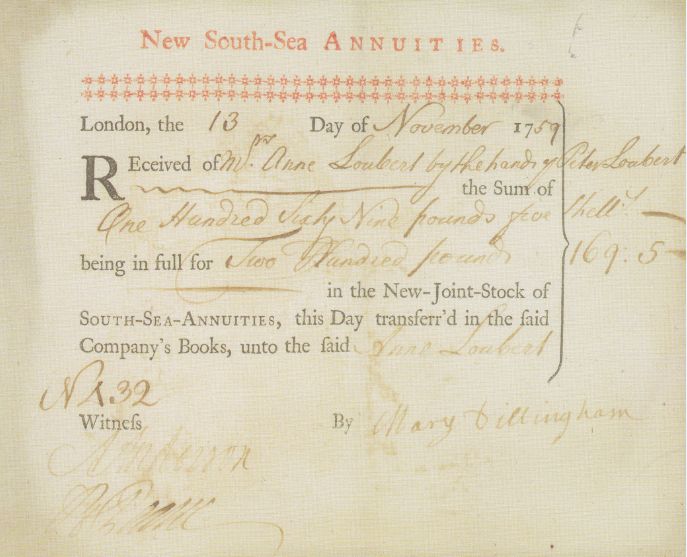 New South-Sea ANNUITIES.
London, the 13 Day of November 1759
REceived of Mrs. Anne Loubert by the hands of Peter Loubert
the Sum of
One Hundred Sixty Nine pounds five Shells
being in full for Two Hundred pounds 169:5—
in the New-Joint-Stock of
SOUTH-SEA-ANNUITIES, this Day transferr'd in the ſaid
Company's Books, unto the ſaid Anne Loubert
No. 32
Witneſs By Mary Dillingham